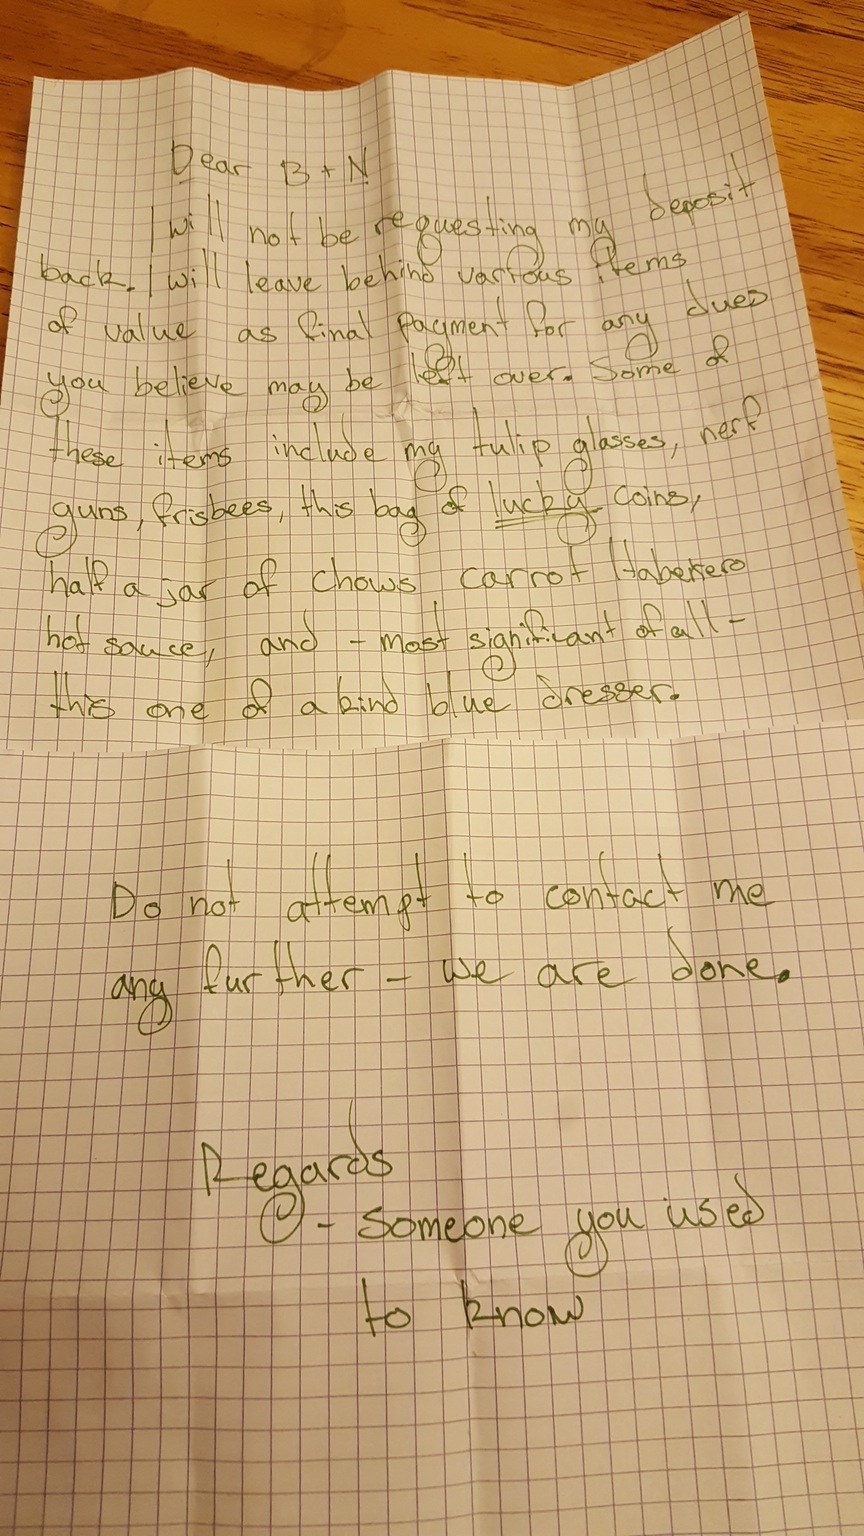 Dear B + N
I will not be requesting my deposit
back. I will leave behind various items
of value as final payment for any dues
you believe may be left over. Some of
these items include my tulip glasses, nerf
guns, frisbees, this bag of lucky coins,
half a jar of chows carrot Habenero
hot sauce, and - most significant of all -
this one of a kind blue dresser.
Do not attempt to contact me
any further - we are done.
Regards
- someone you used
to know